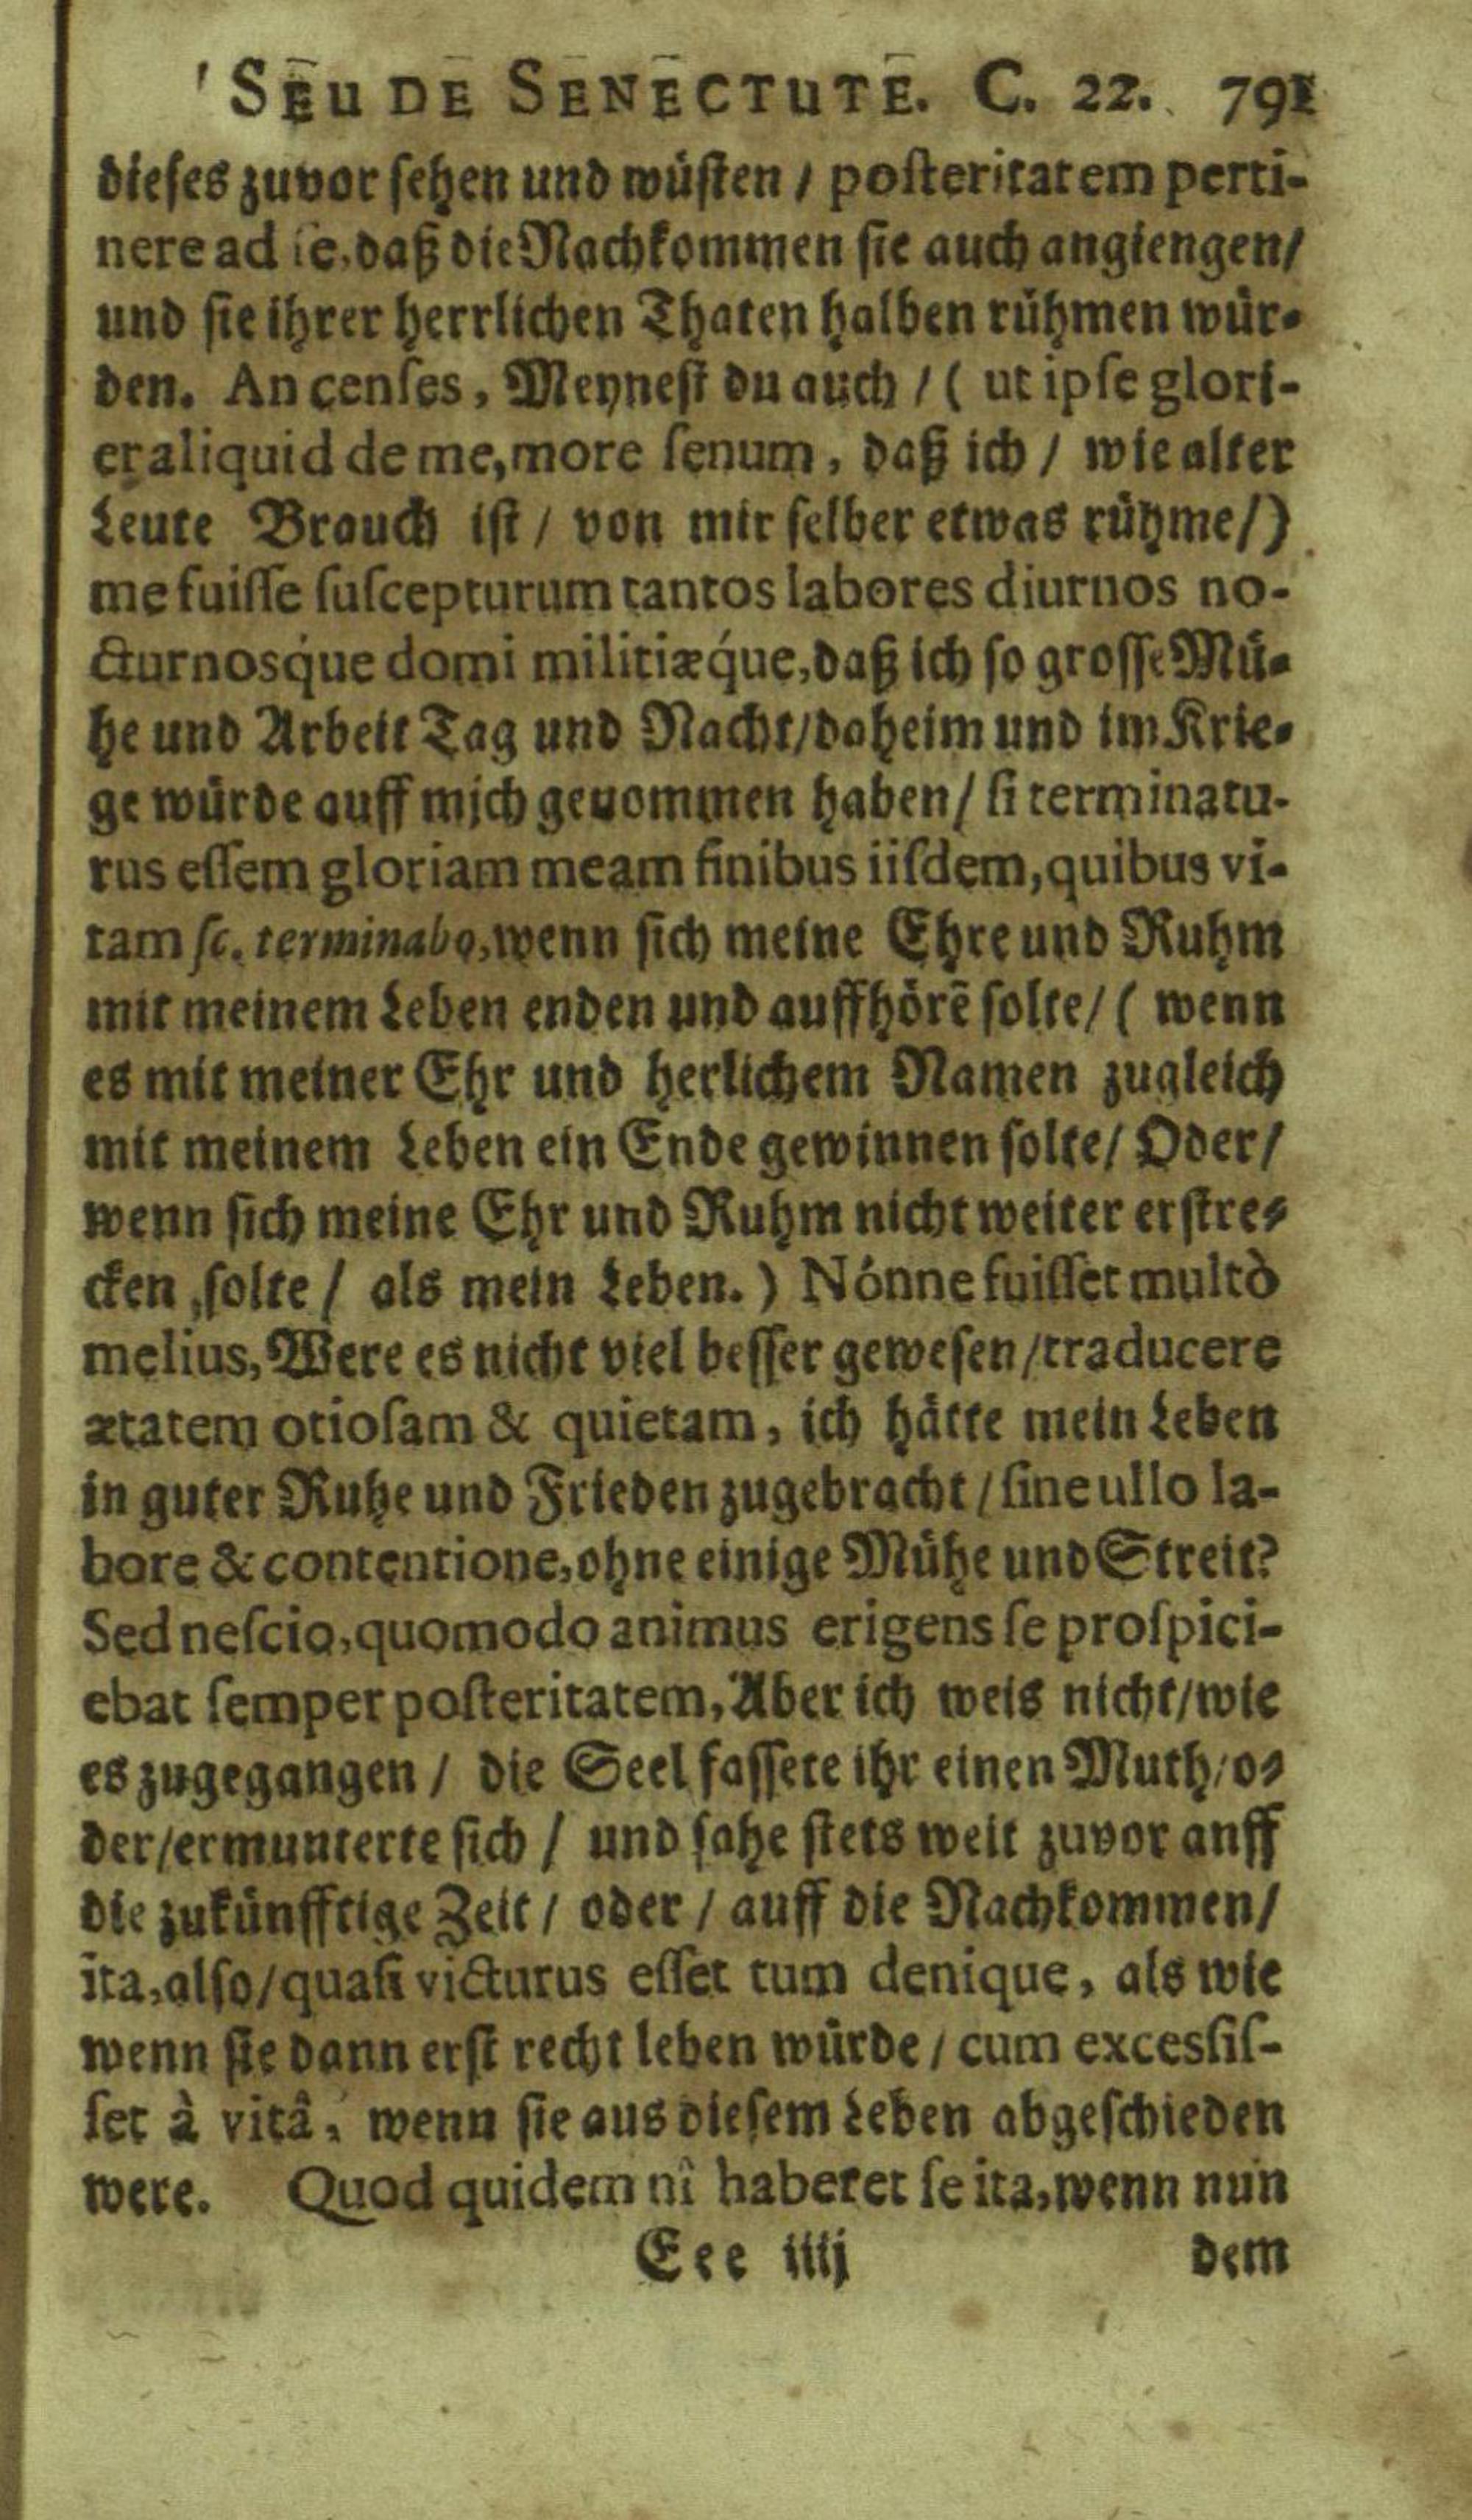 SEU DE SENECTUTE. C. 22. 791
dieses zuvor sehen und wüsten / posteritatem perti-
nere ad se, daß die Nachkommen sie auch angiengen/
und sie ihrer herrlichen Thaten halben rühmen wür-
den. An censes, Meynest du auch / ( ut ipse glori-
er aliquid de me, more senum, daß ich / wie alter
Leute Brauch ist / von mir selber etwas rühme/)
me fuisse suscepturum tantos labores diurnos no-
cturnosq́ue domi militiæq́ue, daß ich so grosse Mü-
he und Arbeit Tag und Nacht/daheim und im Krie-
ge würde auff mich genommen haben/ si terminatu-
rus essem gloriam meam finibus iisdem, quibus vi-
tam sc. terminabo, wenn sich meine Ehre und Ruhm
mit meinem Leben enden und auffhörẽ solte/ ( wenn
es mit meiner Ehr und herlichem Namen zugleich
mit meinem Leben ein Ende gewinnen solte/ Oder/
wenn sich meine Ehr und Ruhm nicht weiter erstre-
cken solte / als mein Leben. ) Nónne fuisset multò
melius, Were es nicht viel besser gewesen / traducere
ætatem otiosam & quietam, ich hätte mein Leben
in guter Ruhe und Frieden zugebracht / sine ullo la-
bore & contentione, ohne einige Mühe und Streit?
Sed nescio, quomodo animus erigens se prospici-
ebat semper posteritatem, Aber ich weis nicht/wie
es zugegangen / die Seel fassete ihr einen Muth/o-
der/ermunterte sich / und sahe stets weit zuvor anff
die zukünfftige Zeit / oder / auff die Nachkommen/
ita, also/quasi victurus esset tum denique, als wie
wenn sie dann erst recht leben würde / cum excessis-
set à vitâ, wenn sie aus diesem Leben abgeschieden
were. Quod quidem nî haberet se ita, wenn nun
Eee iiij dem